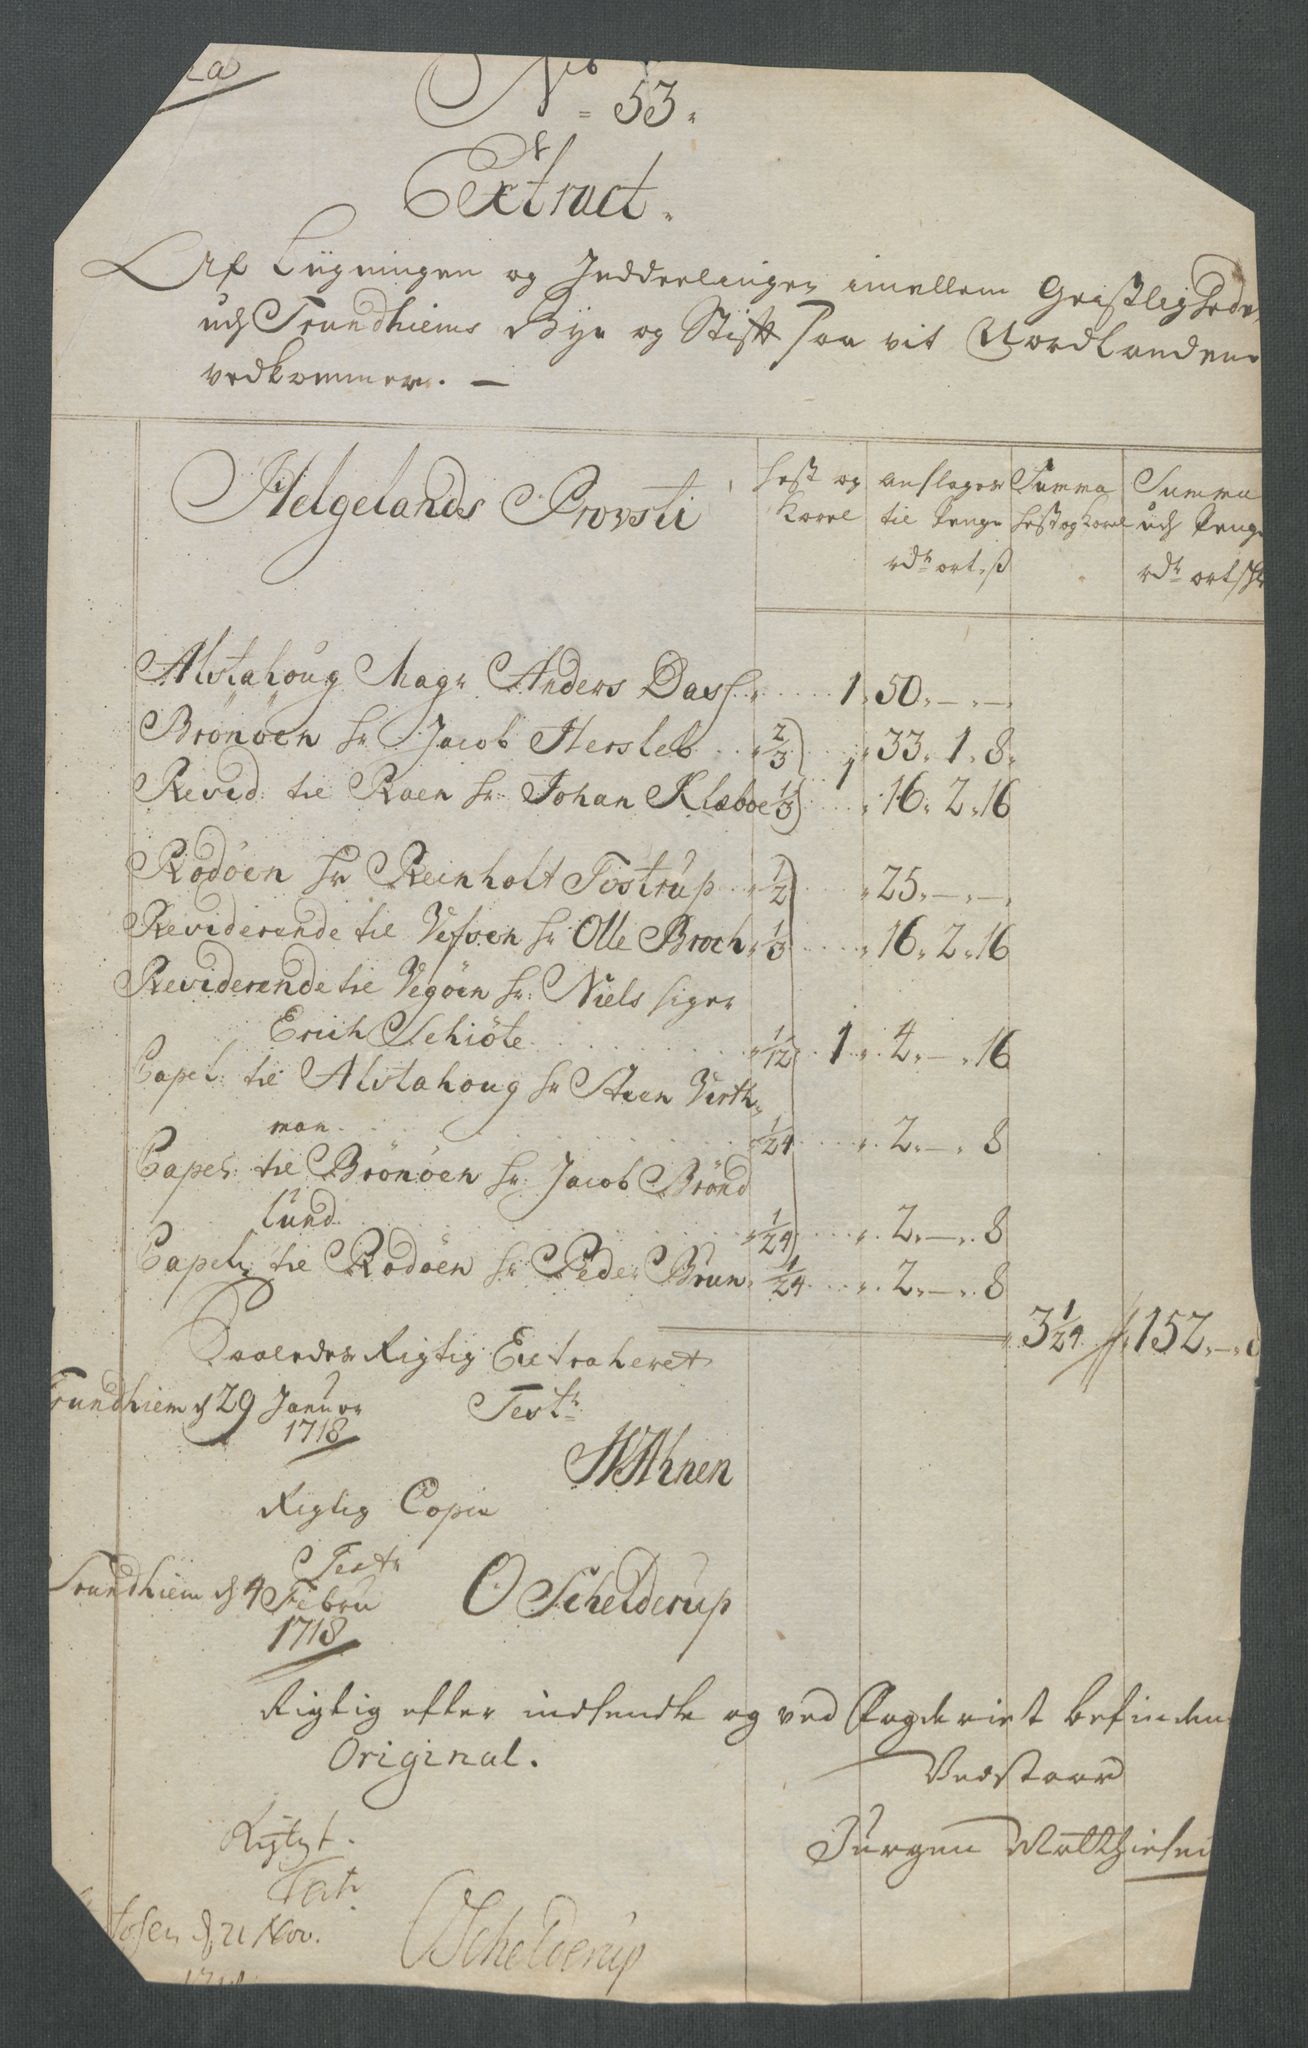 La
No
= 53.
Extract.
Af Ligningen og Inddeelingen imellem Geistligheden
udj Trundhiems Bye og Stift saa vit Nordlandene
vedkommer. —
Helgelands Provsti
Hest og Karel
anslagen til Penge rdr ort. ß
Summa Hest og Karel
Summa udj Penge rdr ort ß
Alstahoug Magr Anders Dass 1. 50. — . — .
Brönöen Hr Jacob Hersleb 2/3 33. 1. 8.
Resid: til Raen Hr Johan Klæboe 1/3 1 16. 2. 16
Rodöen Hr Reinholt Tostrup 1/2 25. — . — .
Residerende til Vefsen Hr Olle Broch 1/3 16. 2. 16
Residerende til Vegöen Hr: Niels
Erich Schiöte 1/12 1 4. — . 16
Capel: til Alstahoug Hr Steen Virth-
man 1/24 2. — . 8
Capel: til Brönöen Hr: Jacob Brönd
lund 1/24 2. — . 8
Capel: til Rodöen Hr Peder Brun 1/24 2. — . 8
3 1/24 152. — . 8
Saaledes Rigtig Extraheret
Trundhiem d 29 Januar Test:
1718
WAhnen
Rigtig Copie
Test:
Trundhiem d 4 Febru O Schelderup
1718
Rigtig efter indsendte og ved Fogderiet befindende
Original. Vedstaar
Jürgen Matthiesen
Rigtigt.
Test:
tosen d 21 Nov. O Schelderup